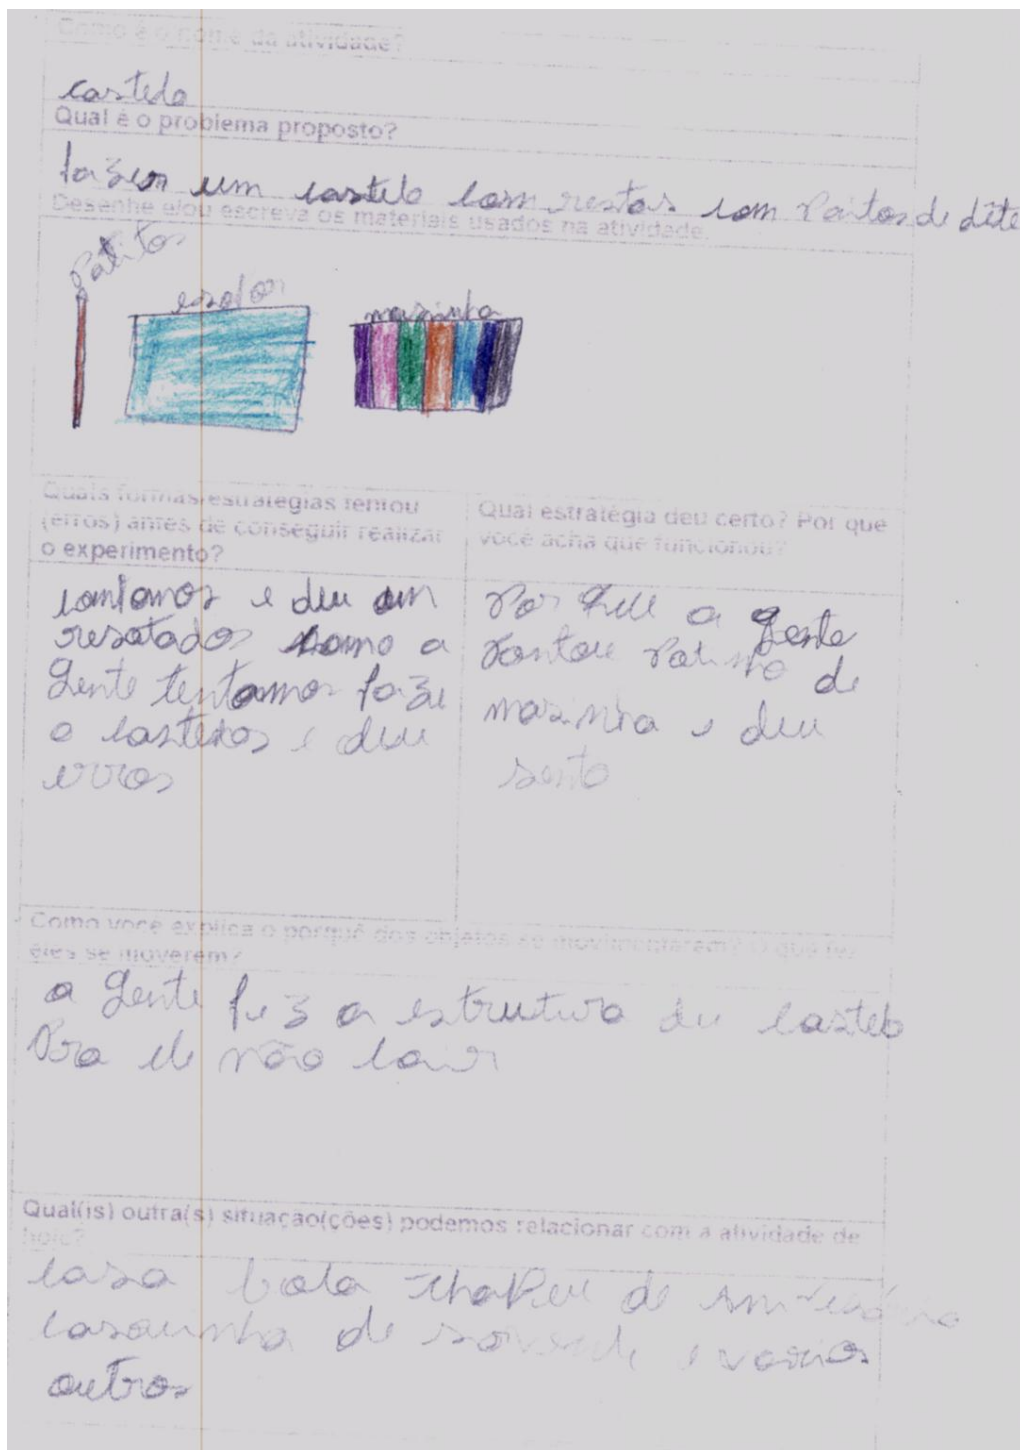 Como é o nome da atividade?
castelo
Qual é o problema proposto?
fazer um castelo com restos com Paitos de dête
Desenhe e/ou escreva os materiais usados na atividade.
Palitos
masinha
Quais formas/estratégias tentou
(erros) antes de conseguir realizar
o experimento?
e deu um
resotados como a
Gente tentamos faze
o castelos e deu
erros
Qual estratégia deu certo? Por que
você acha que funcionou?
Por que a gente
de
masinha e deu
serto
Como você explica o porquê dos objetos se movimentarem? O que fez
eles se moverem?
a Gente fez a estrutura du castelo
Pra ele não cair
Qual(is) outra(s) situação(ções) podemos relacionar com a atividade de
hoje?
casa bola chapeu de
de e varios
outros